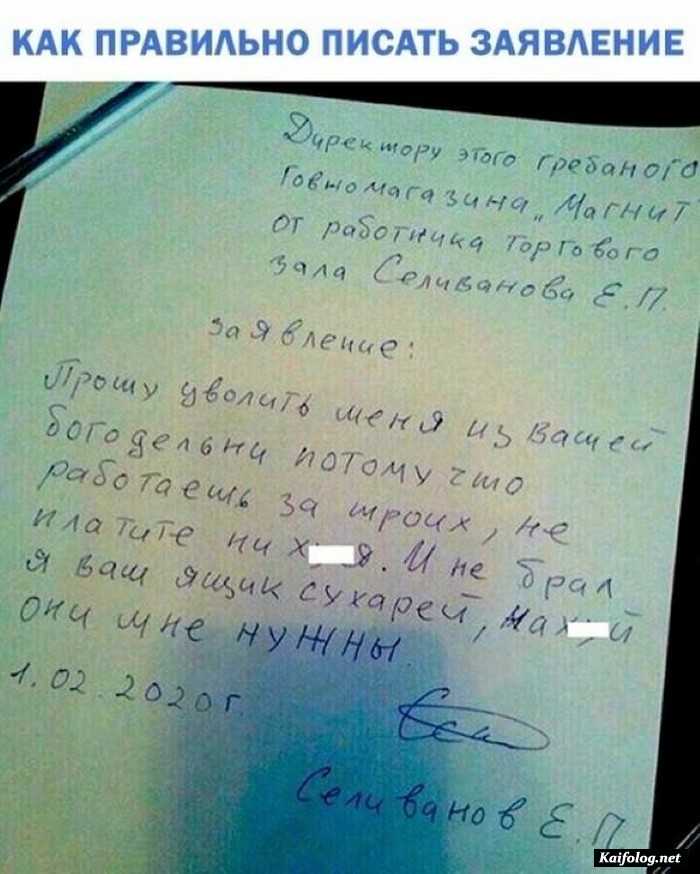 КАК ПРАВИЛЬНО ПИСАТЬ ЗАЯВЛЕНИЕ
Директору этого гребаного
Говномагазина „Магнит
от работника торгового
зала Селиванова Е.П.
заявление:
Прошу уволить меня из вашей
богодельни потому что
работаешь за троих, не
платите ни х я. И не брал
я ваш ящик сухарей, нах й
они мне нужны
1.02.2020г.
Селиванов Е.П.
Kaifolog.net